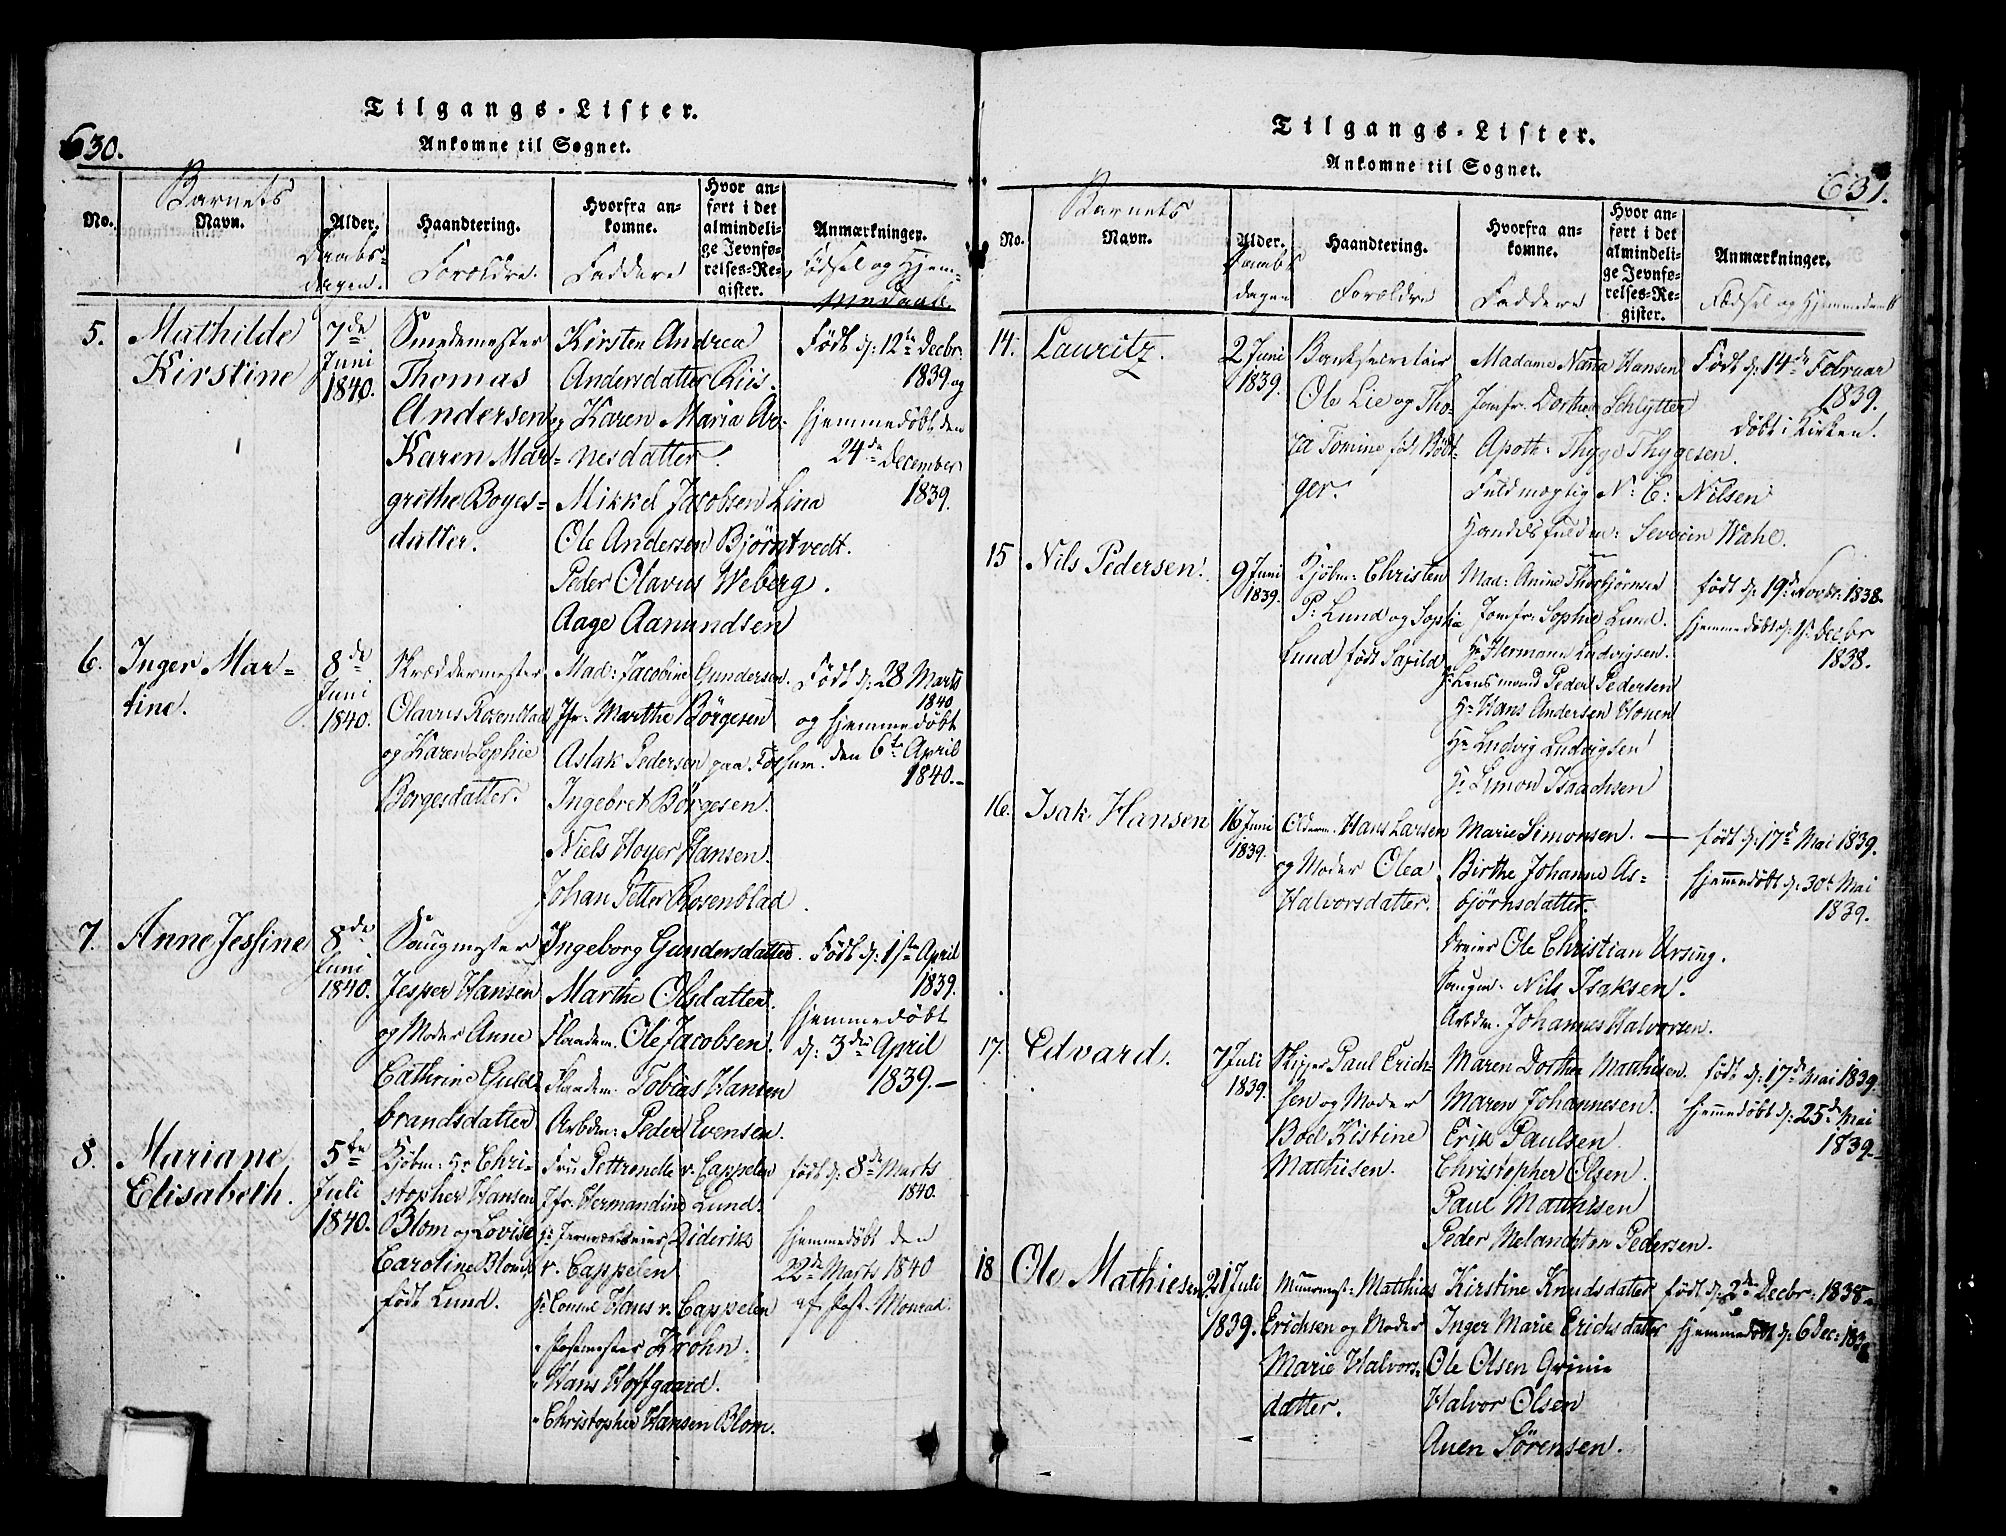 630.
Tilgangs-Lister.
Ankomne til Sognet.
No.
Barnets
Navn.
Alder.
Daabs-
dagen.
Haandtering.
Forældre.
Hvorfra an-
komne.
Faddere
Hvor an-
ført i det
almindeli-
ge Jevnfø-
relses-Re-
gister.
Anmærkninger.
Födsel og Hjem-
medaab.
5. Mathilde
Kirstine
7de
Juni
1840.
Smedemester
Thomas
Andersen og
Karen Mar-
grethe Boyes-
datter.
Kirsten Andrea
Andersdatter Riis.
Karen Maria Ar-
nesdatter.
Mikkel Jacobsen Lina
Ole Andersen Björntvedt.
Peder Olavus Weberg.
Aage Aanundsen
Født d: 12te Decbr:
1839. og
hjemmedøbt den
24de December
1839.
6. Inger Mar-
tine.
8de
Juni
1840.
Skræddermester
Olavus Rosenblad
og Karen Sophie
Borgesdatter.
Mad: Jacobine Gundersen.
Jfr. Marthe Börgesen
Aslak Pedersen paa Fossum.
Ingebret Börgesen.
Niels Hoyer Hansen.
Johan Petter Rosenblad.
Født d: 28 Marts
1840
og hjemmedøbt
den 6te April
1840.-
7. Anne Jessine
8de
Juni
1840.
Saugmester
Jesper Hansen
og Moder Anne
Cathrine Guld-
brandsdatter
Ingeborg Gundersdatter.
Marthe Olsdatter.
Flaadem. Ole Jacobsen.
Flaadem: Tobias Hansen
Arbdm: Peder Evensen.
Født d: 1ste April
1839.
hjemmedøbt
d: 3die April
1839.-
8. Mariane
Elisabeth.
5te
Juli
1840.
Kjöbm: Hr Chri-
stopher Hansen
Blom og Lovise
Caroline Blom,
født Lund.
Fru Pettrenelle v. Cappelen
Jfr. Hermandine Lund.
Hr Jernværkseier Diderik
v. Cappelen
Hr Consul Hans v. Cappelen
" Postmester Krohn.
" Hans Hoffgaard.
" Christopher Hansen Blom.
født d: 8de Marts
1840.
hjemmedøbt den
22de Marts 1840
af Past. Monrad.
631.
Tilgangs-Lister.
Ankomne til Sognet.
No.
Barnets
Navn.
Alder.
Daabs
dagen
Haandtering.
Forældre
Hvorfra an-
komne.
Faddere
Hvor an-
ført i det
almindeli-
ge Jevnfø-
relses-Re-
gister.
Anmærkninger.
Fødsel og Hjemmedaab
14. Lauritz.
2 Juni
1839.
Banksecretair
Ole Lie og Tho-
ra Tomine föd Bödt-
ger.
Madame Nanna Hansen
Jomfr. Dorthea Schlytter
Apoth: Thyge Thygesen.
Fuldmægtig N: C: Nilsen
Handelsfuldm: Severin Wahl.
Født d: 14de Februar
1839.
døbt i Kirken.
15 Nils Pedersen.
9 Juni
1839.
Kjöbm: Christen
P: Lund og Sophie
Lund født Sapild
Mad: Anine Thorbjörnsen
Jomfr: Sophie Lund.
Hr Hermann Ludvigsen.
Hr Lensmand Peder Pedersen
Hr Hans Andersen Honen
Hr Ludvig Ludvigsen
Hr Simon Isaachsen
født d: 19de Novbr: 1838.
hjemmedøbt d: 1st Decbr
1838.
16. Isak Hansen
16 Juni
1839.
Hans Larsen
og Moder Olea
Halvorsdatter.
Marie Simonsen.
Birthe Johanne As-
björnsdatter.
Dreier Ole Christian Ursing.
Saugm: Nils Isaksen.
Arbdm. Johannes Halvorsen.
født d: 17de Mai 1839.
hjemmedøbt d: 30te Mai
1839.
17. Edvard.
7 Juli
1839.
Skipper Paul Erich-
sen og Moder
Bod Kistine
Mathisen.
Maren Dorthea Mathisen.
Maren Johannesen.
Erik Paulsen
Christopher Olsen.
Paul Mathisen
Peder Melancton Pedersen.
født d: 17de Mai 1839.
hjemmedøbt d: 25de Mai
1839.-
18 Ole Mathiesen
21 Juli
1839.
Muurmst: Matthias
Erichsen og Moder
Marie Halvors-
datter.
Kirstine Knudsdatter
Inger Marie Erichsdatter
Ole Olsen Grinie
Halvor Olsen
Auen Sörensen.
født d: 2de Decbr: 1838
hjemmedøbt d: 6 Dec: 1838